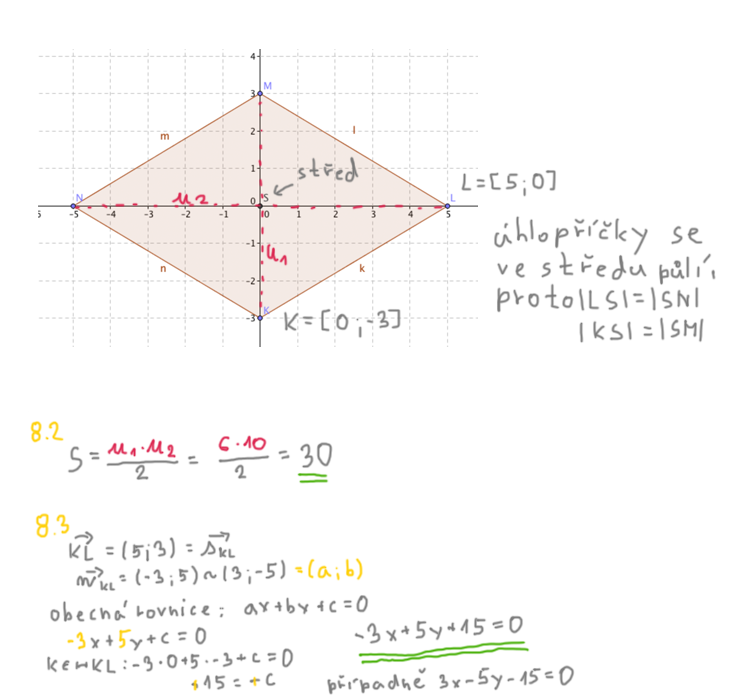 4
3
M
m
2
l
1
střed
N
u2
0
S
L
L=[5;0]
5
-5
-4
-3
-2
-1
0
1
2
3
4
5
úhlopříčky se
-1
u1
ve středu půlí,
n
-2
k
proto |LS|=|SN|
-3
K
K=[0;-3]
|KS|=|SM|
8.2
S = u1·u2/2 = 6·10/2 = 30
8.3
KL = (5;3) = sKL
nKL = (-3;5) ~ (3;-5) = (a;b)
obecná rovnice: ax+by+c=0
-3x+5y+c=0
-3x+5y+15=0
K∈↔KL: -3·0+5·-3+c=0
+15=+c
případně 3x-5y-15=0